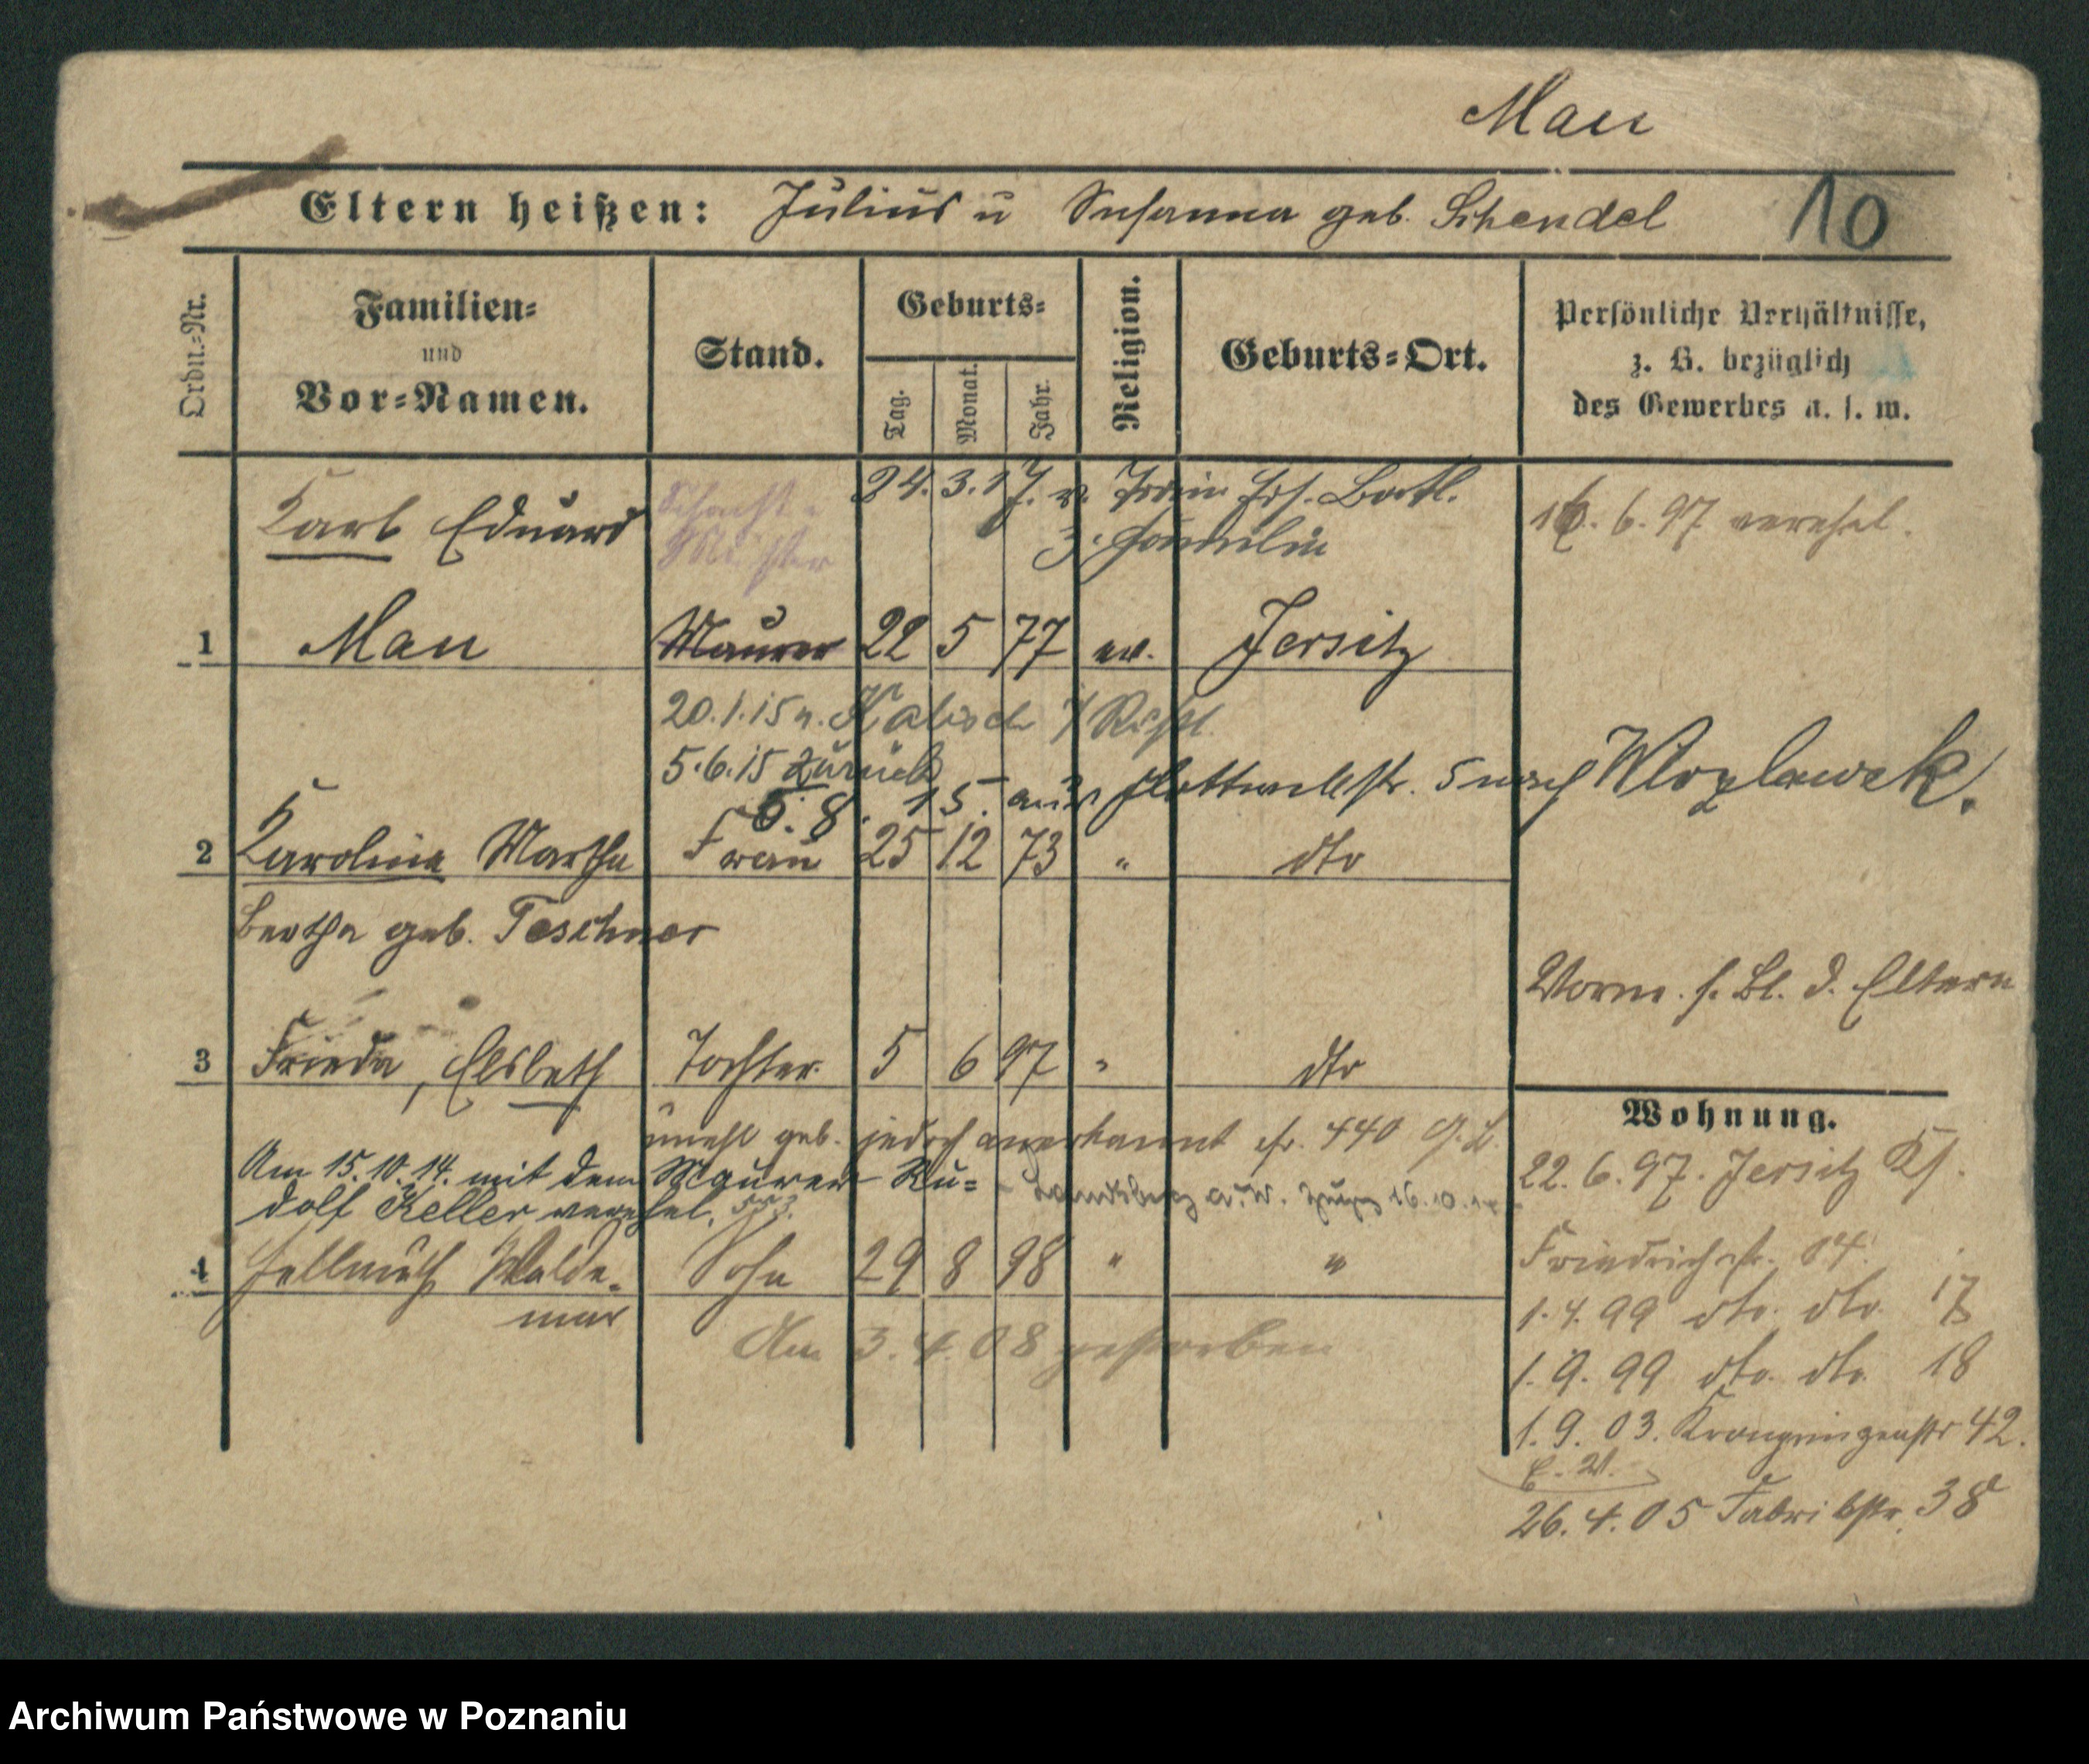 Mau
Eltern heißen: Julius u Susanna geb. Schendel 10
Ordn.-Nr.
Familien-
und
Vor-Namen.
Stand.
Geburts-
Tag.
Monat.
Jahr.
Religion.
Geburts-Ort.
Persönliche Verhältnisse,
z. B. bezüglich
des Gewerbes u. s. w.
24. 3. 17. v.
z. Familie
Karl Eduard
Schacht-
Meister
16. 6. 97 verehel.
1 Mau Maurer 22 5 77 ev. Jersitz
20.1.15 n. Kalisch
5.6.15 zurück
5. 8. 15. aus Flottwellstr. 5 nach Wlozlawek.
2 Karolina Martha Frau 25 12 73 " dto
Bertha geb. Teschner
Vorm. s. Bl. d. Eltern
3 Frieda, Elsbeth Tochter 5 6 97 " dto
unehl geb. jedoch anerkannt cfr. 440
Am 15.10.14. mit dem Maurer Ru-
dolf Keller verehel. Landsberg a. W. 16.10.14
4 Hellmuth Walde- Sohn 29 8 98 " "
mar
Am 3. 4. 08 gestorben
Wohnung.
22. 6. 97. Jersitz
Friedrichstr. 04.
1. 4. 99 dto. dto. 17
1. 9. 99 dto. dto. 18
1. 9. 03. Kronprinzenstr 42.
26. 4. 05 Fabrikstr. 38
Archiwum Państwowe w Poznaniu